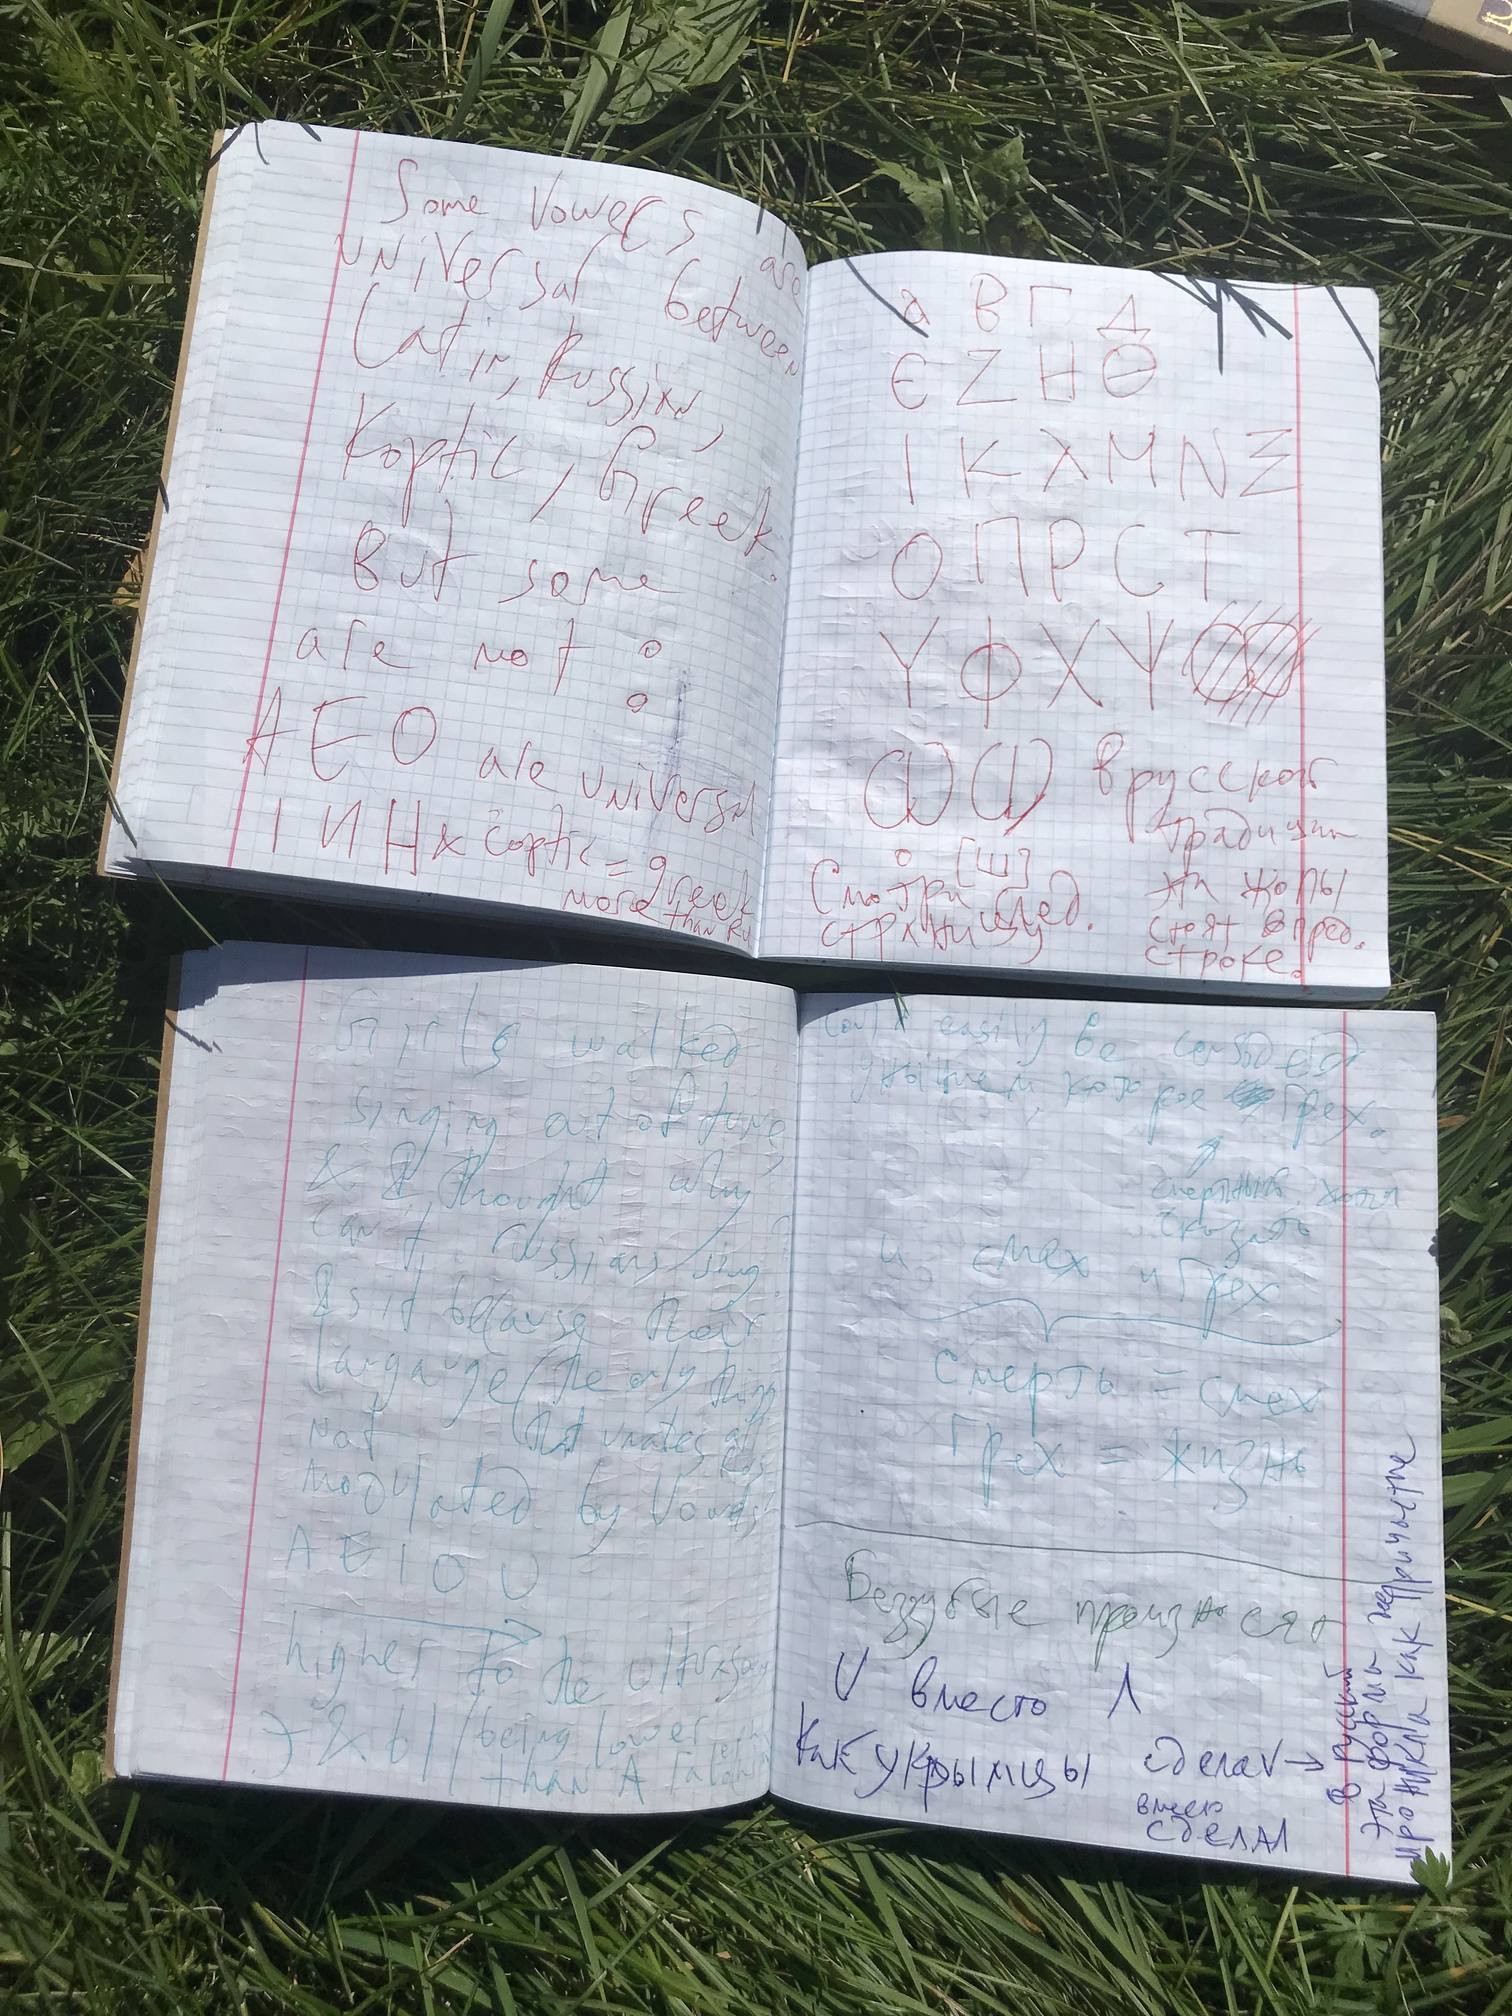 Some Vowels are
universal between
Latin, Russian,
Koptic, Greek.
But some
are not:
A E O are universal
I И H & coptic = greek
more than Ru
а В Г Д
Є Z H Θ
I K λ M N Ξ
О П Р С Т
Y Φ X Ψ
в русской
традиции
эти жопы
стоят в пред.
строке.
[Ш]
Смотри след.
страницу
Girls walked
singing out of tune
& I thought why
can't russians sing?
Is it because their
language (the only thing
that unites all
not
modulated by Vowels
A E I O U
higher to the
Э & Ы being lower
than A
easily be
унынием которое грех.
смертный хотя
сказать
и смех и Грех
Смерть = смех
Грех = жизнь
Беззубые произносят
V вместо Л
Как укрымцы сделаV →
вместо
сделал
в русский
эта форма
проникла как причастие